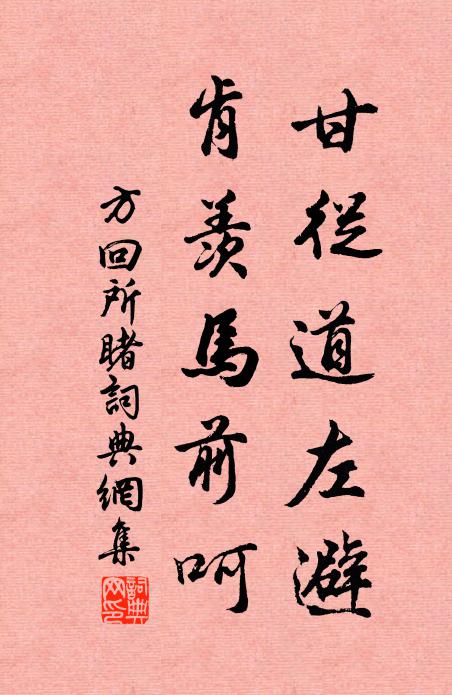 甘從道左避
肯羨馬前呵
方回所睹詞典網集
詞典网印